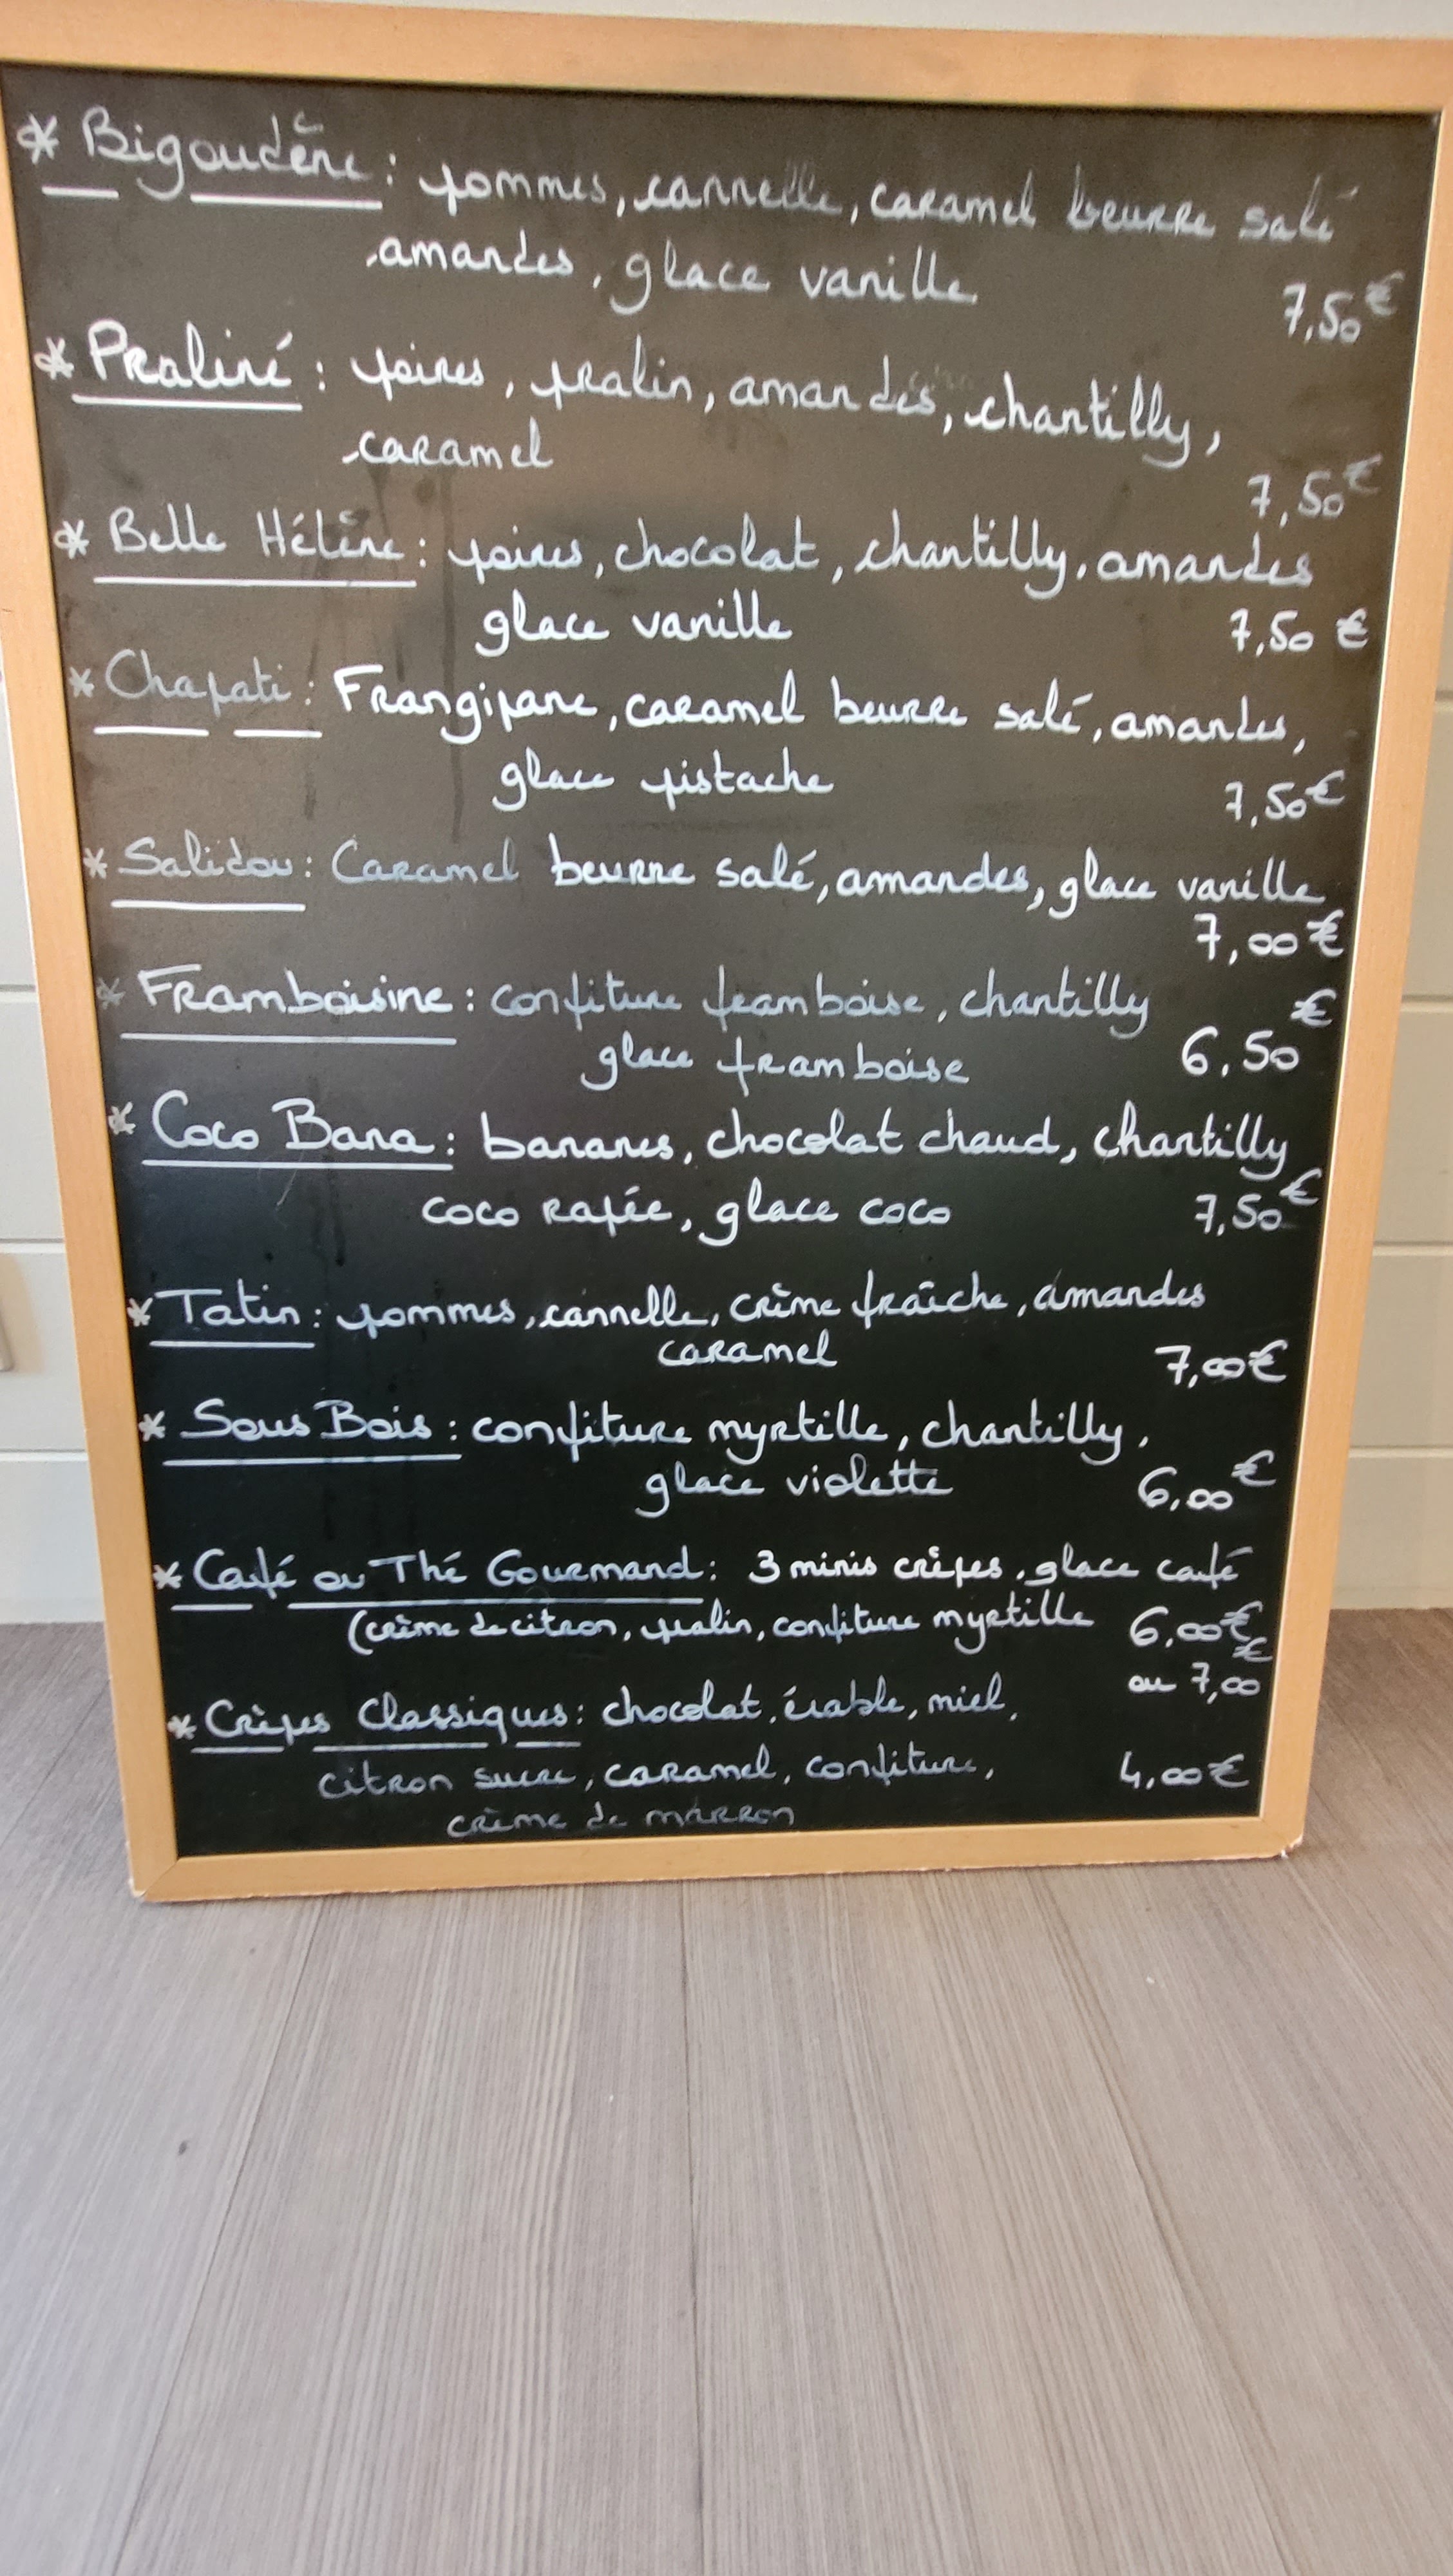 * Bigoudène : pommes, cannelle, caramel beurre salé
amandes, glace vanille 7,50€
* Praliné : poires, pralin, amandes, chantilly,
caramel 7,50€
* Belle Hélène : poires, chocolat, chantilly, amandes
glace vanille 7,50 €
* Chapati : Frangipane, caramel beurre salé, amandes,
glace pistache 7,50€
* Salidou : Caramel beurre salé, amandes, glace vanille
7,00€
* Framboisine : confiture framboise, chantilly
glace framboise 6,50€
* Coco Bana : bananes, chocolat chaud, chantilly
coco rapée, glace coco 7,50€
* Tatin : pommes, cannelle, crème fraîche, amandes
caramel 7,00€
* Sous Bois : confiture myrtille, chantilly,
glace violette 6,00€
* Café ou Thé Gourmand : 3 minis crèpes, glace café
(crème de citron, pralin, confiture myrtille 6,00€
ou 7,00€
* Crèpes Classiques : chocolat, érable, miel,
citron sucre, caramel, confiture, 4,00€
crème de marron